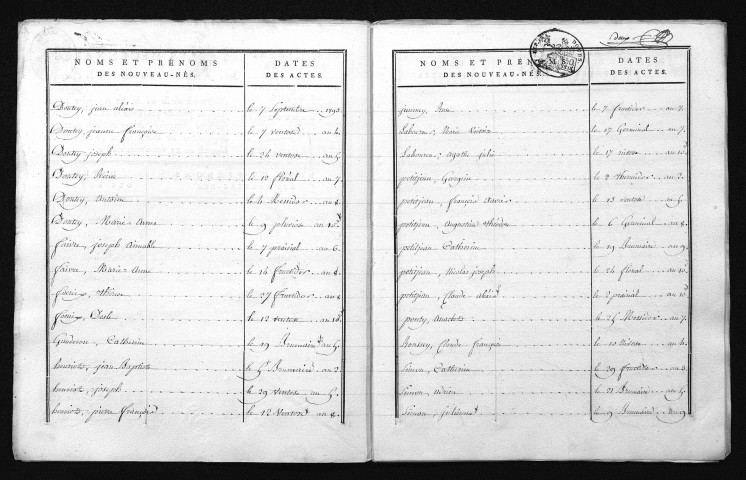 NOMS ET PRÉNOMS
DES NOUVEAU-NÉS.
DATES
DES ACTES.
Doutey, jean
le 7 Septembre 1793
Doutey, jeanne françoise
le 7 ventose an 4.
Doutey joseph
le 24 ventose an 5
Doutey, Reine
le 10 floréal an 7.
Doutey, Antoine
le 4 Messidor an 8.
Doutey, Marie Anne
le 9 pluviose an 10
faivre, joseph Aimable
le 7 prairial an 6.
faivre, Marie Anne
le 14 fructidor an 8.
le 27 fructidor an 8
le 12 ventose an 10
Gauderon, Catherine
le 19 Brumaire an 5.
henriot, jean Baptiste
le 5 Brumaire an 2.
henriot, joseph
le 29 ventose an 5.
henriot, pierre françois
le 12 ventose an 8.
NOMS ET PRÉNOMS
DES NOUVEAU-NÉS.
DATES
DES ACTES.
le 7 fructidor an 7.
Marie
le 17 Germinal an 7.
Agathe julie
le 17 nivose an 10
petitjean, Georgine
le 2 thermidor an 3.
petitjean, françois Xavier
le 13 ventose an 5
petitjean, Augustin
le 6 Germinal an 8
petitjean Catherine
le 19 Brumaire an 9.
petitjean, Nicolas joseph
le 24 floréal an 10
petitjean, Claude
le 2 prairial an 10
Anaclet
le 25 Messidor an 7.
Claude françois
le 10 Nivose an 4.
Simon, Catherine
le 29 fructidor an 3.
Simon, Adrien
le 21 Brumaire an 5.
Simon, julienne
le 9 Brumaire an 9